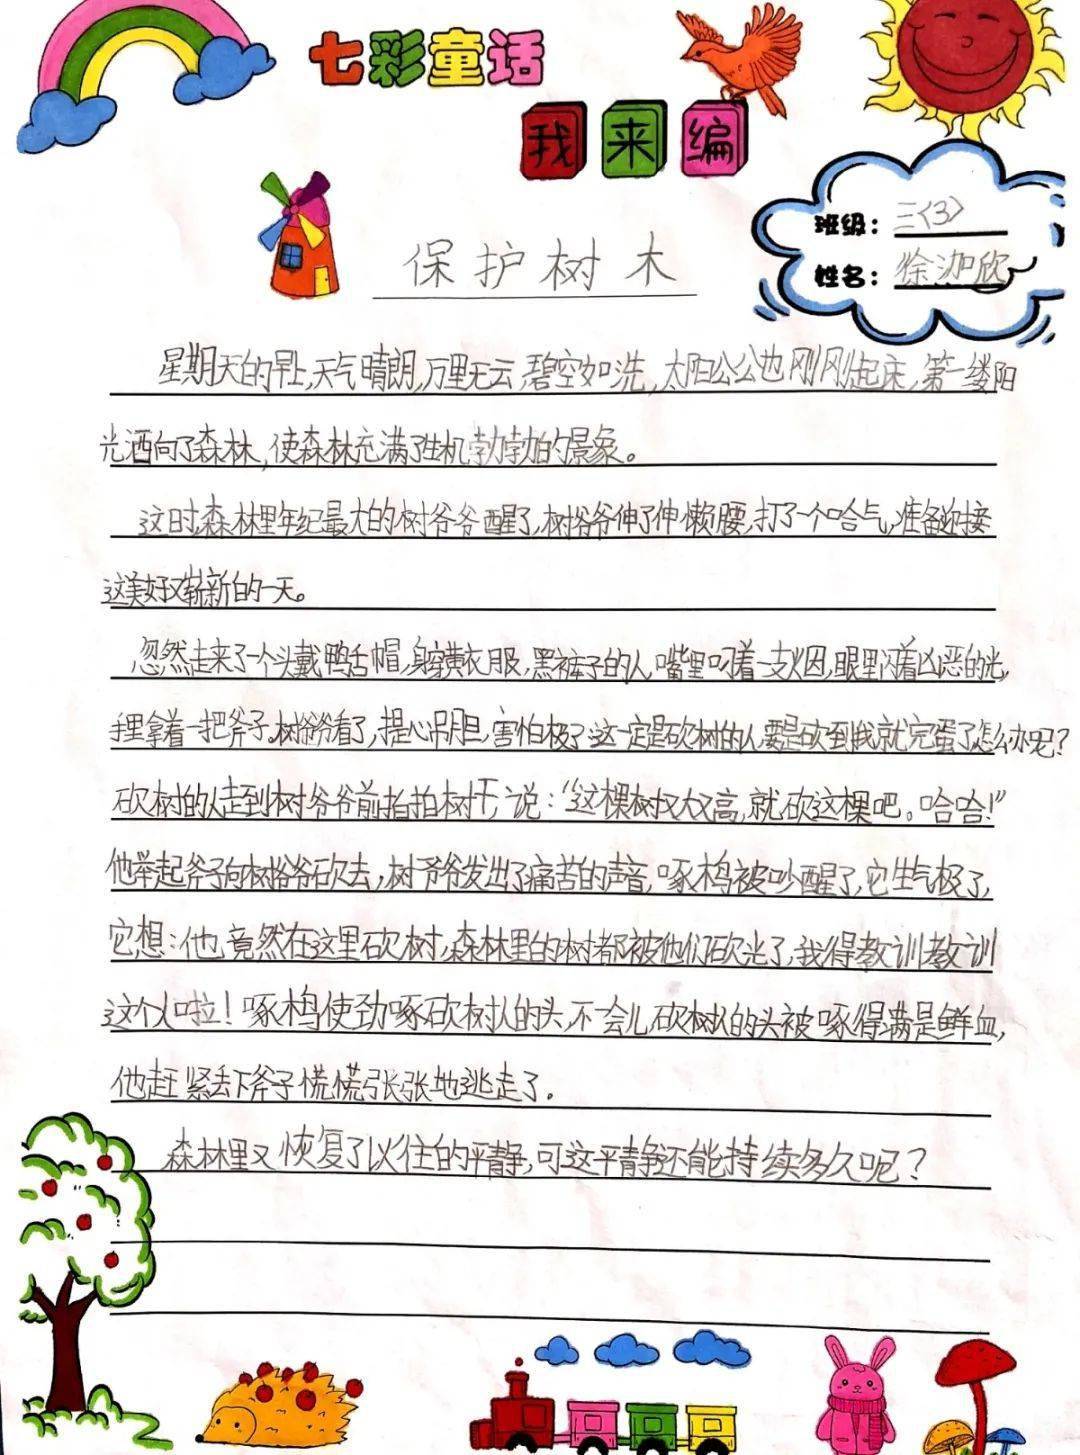 七彩童话
我来编
班级：三〈3〉
姓名：徐洳欣
保护树木
星期天的早上，天气晴朗，万里无云，碧空如洗，太阳公公也刚刚起床，第一缕阳
光洒向了森林，使森林充满了生机勃勃的景象。
这时森林里年纪最大的树爷爷醒了，树爷爷伸了伸懒腰，打了一个哈气，准备迎接
这美好又崭新的一天。
忽然走来了一个头戴鸭舌帽，身穿黄衣服，黑裤子的人，嘴里叼着一支烟，眼里闪着凶恶的光，
手里拿着一把斧子。树爷爷看了，提心吊胆，害怕极了：这一定是砍树的人要是砍到我就完蛋了怎么办呢？
砍树的人走到树爷爷前拍拍树干，说：“这棵树又大又高，就砍这棵吧。哈哈！”
他举起斧子向树爷爷砍去，树爷爷发出了痛苦的声音，啄木鸟被吵醒了，它生气极了，
它想：他竟然在这里砍树，森林里的树都被他们砍光了，我得教训教训
这个人啦！啄木鸟使劲啄砍树人的头，不一会儿砍树人的头被啄得满是鲜血，
他赶紧丢下斧子慌慌张张地逃走了。
森林里又恢复了以往的平静，可这平静还能持续多久呢？